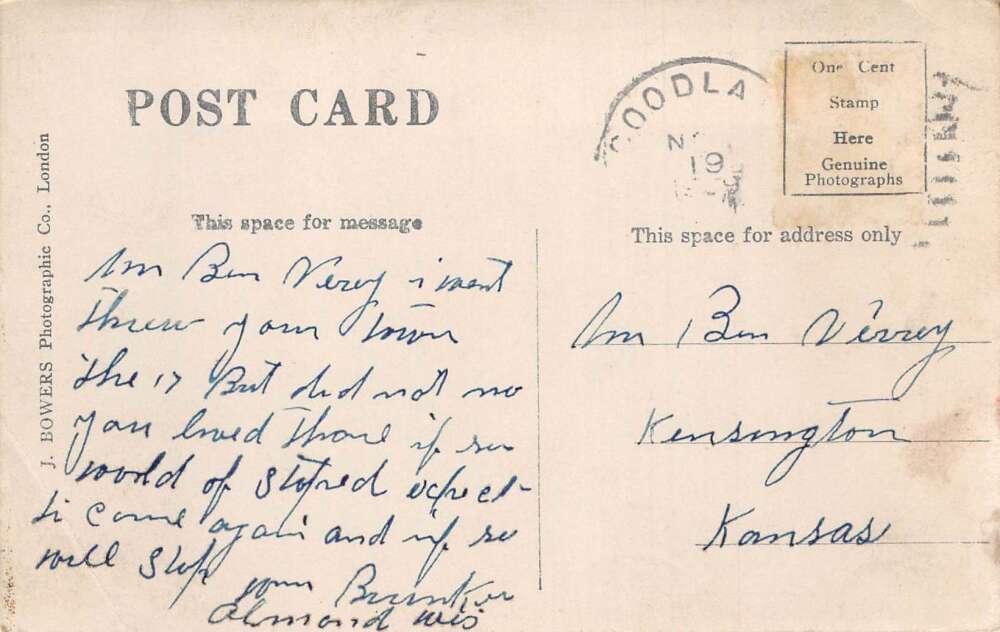 POST CARD
GOODLA
19
One Cent
Stamp
Here
Genuine
Photographs
J. BOWERS Photographic Co., London
This space for message
This space for address only
Mr Ben Verry i went
threw your town
the 17 But did not no
you lived thare if so
world of stoped expect
to come again and if so
will stop
your
Almond Wis
Mr Ben Verrey
Kensington
Kansas